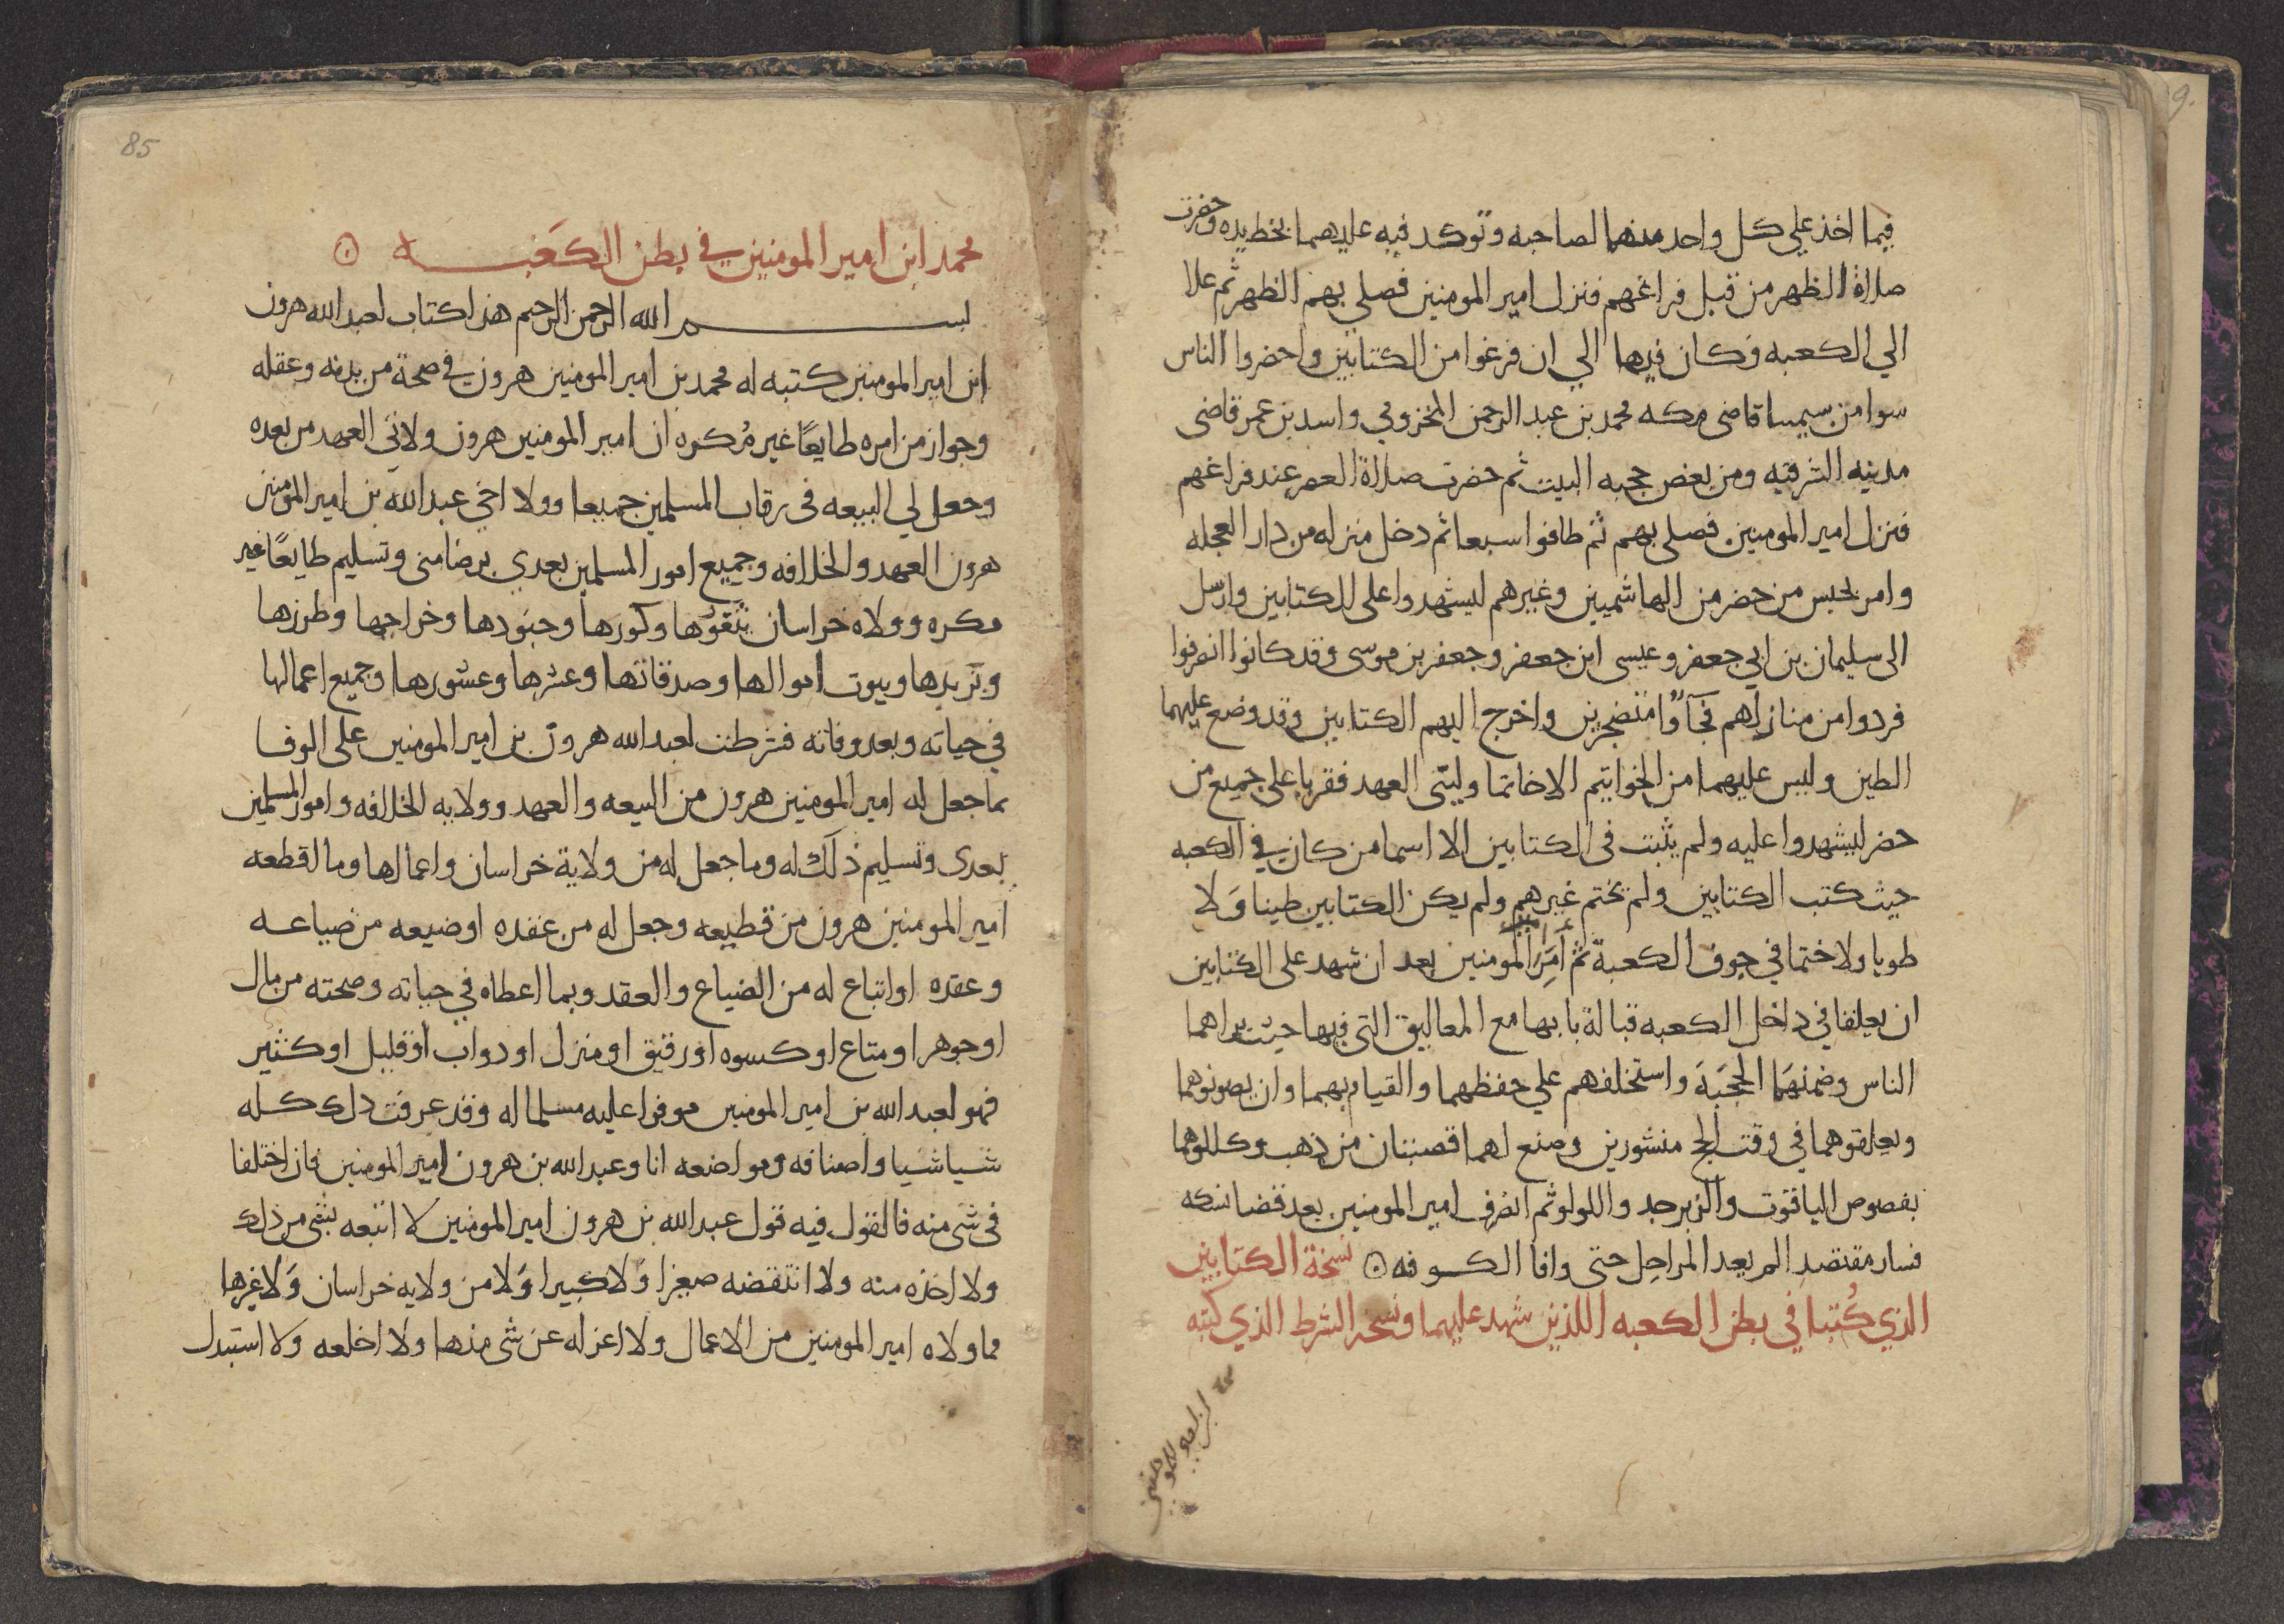 فيما اخذ علي كل واحد منهما لصاحبه وتوكد فيه عليهما بخط يده وحضرت
صلاة الظهر من قبل فراغهم فنزل امير المومنين فصلي بهم الظهر ثم علا
الي الكعبه وكان فيها الي ان فرغوا من الكتابين واحضروا الناس
سوا من سيمسا قاضي مكه محمد بن عبد الرحمن المخزومي واسد بن عمر قاضي
مدينه الشرقيه ومن بعض حجبه البيت ثم حضرت صلاة العصر عند فراغهم
فنزل امير المومنين فصلي بهم ثم طافوا سبعا ثم دخل منزله من دار العجله
وامر بحبس من حضر من الهاشميين وغيرهم ليشهدوا علي الكتابين وارسل
الي سليمان بن ابي جعفر وعيسي ابن جعفر وجعفر بن موسي وقد كانوا انصرفوا
فردوا من منازلهم فجآوا متضجرين واخرج اليهم الكتابين وقد وضع عليهما
الطين وليس عليهما من الخواتيم الا خاتما وليّي العهد فقريا علي جميع من
حضر ليشهدوا عليه ولم يثبت في الكتابين الا اسما من كان في الكعبه
حيث كتب الكتابين ولم يختم غيرهم ولم يكن الكتابين طينا وَلا
طويا ولا ختما في جوف الكعبة ثم أمَرَ المومنين بعد ان شهد علي الكتابين
ان يعلقا في داخل الكعبه قبالة بابها مع المعاليق التي فيها حيث يراهما
الناس وضمنهَما الحجَبَة واستخلفهم علي حفظهما والقيام بهما وان يصونوهما
ويعلقوهما في وقت الحج منشورين وصنع لهما قصبتان من ذهب وكللوهما
بفصوص الياقوت والزبرجد واللولو ثم انصرف امير المومنين بعد قضا نسكه
فسار مقتصد الم يعد المراحل حتي وافا الكوفه نسخة الكتابين
الذي كُتبا في بطن الكعبه اللذين شهد عليهما ونسخه الشرط الذي كتبه
85
محمد ابن امير المومنين في بطن الكعَبه
بسم الله الرحمن الرحيم هذا كتاب لعبد الله هرون
ابن امير المومنين كتبه له محمد بن امير المومنين هرون في صحة من بدنه وعقله
وجواز من امره طايعًا غير مُكره ان امير المومنين هرون ولاني العهد من بعده
وجعل لي البيعه في رقاب المسلمين جميعا وولا اخي عبد الله بن امير المومنين
هرون العهد والخلافه وجميع امور المسلمين بعدي برضا مني وتسليم طايعًا غير
مكره وولاه خراسان بثغورها وكورها وجنودها وخراجها وطرزها
وبَريدها وبيوت اموالها وصدقاتها وعشرها وعشورها وجميع اعمالها
في حياته وبعد وفاته فشرطت لعبد الله هرون بن امير المومنين علي الوفا
بما جعل له امير المومنين هرون من البيعه والعهد وولايه الخلافه وامور المسلمين
بعدي وتسليم ذلك له وما جعل له من ولاية خراسان واعمالها وما اقطعه
امير المومنين هرون من قطيعه وجعل له من عقده او ضيعه من ضياعه
وعقده او ابتاع له من الضياع والعقد وبما اعطاه في حياته وصحته من مال
او جوهر او متاع او كسوه او رقيق او منزل او دواب او قليل او كثير
فهو لعبد الله بن امير المومنين موفرا عليه مسلما له وقد عرفت ذلك كله
شيا شيا واصنافه ومواضعه انا وعبد الله بن هرون امير المومنين فان اختلفا
في شي منه فالقول فيه قول عبد الله بن هرون امير المومنين لا اتبعه بشي من ذلك
ولا اخذه منه ولا انتقضه صغيرا وَلا كبيرا وَلا من ولايه خراسان وَلا غيرها
مما ولاه امير المومنين من الاعمال ولا اعزله عن شي منها ولا اخلعه ولا استبدل